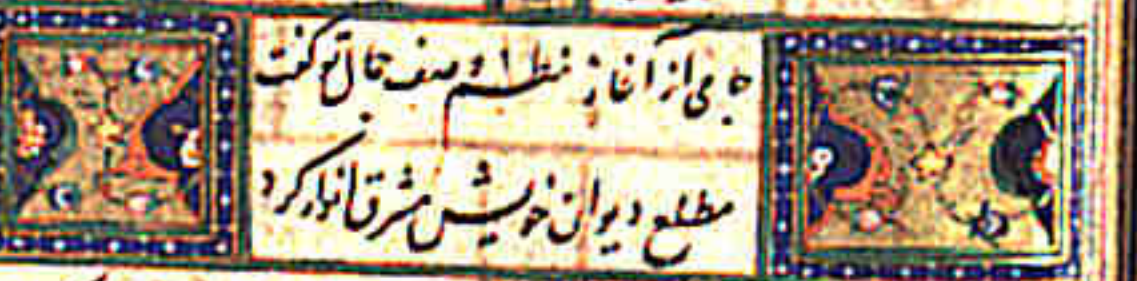 جامی از آغاز نظم وصف جمال تو گفت
مطلع دیوان خویش مشرق انوار کرد